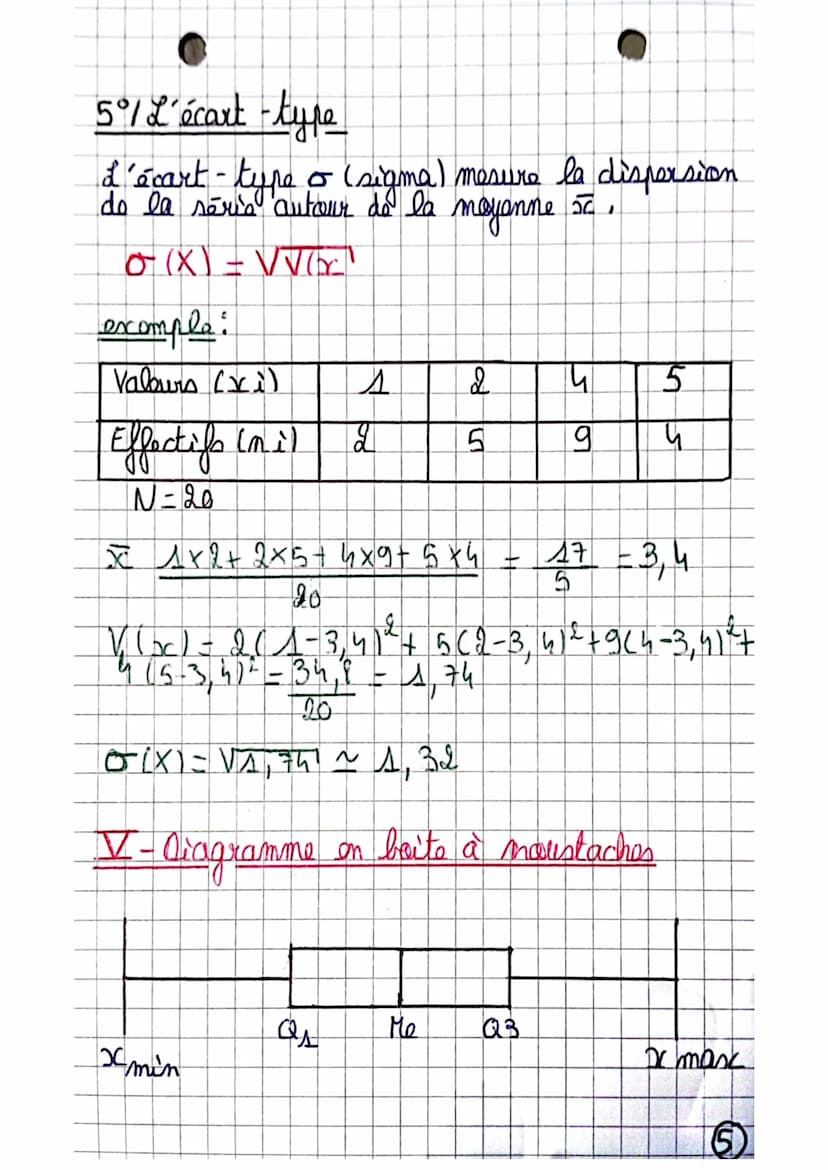 5°/ L'écart-type
L'écart-type σ (sigma) mesure la dispersion
de la série autour de la moyenne x̄.
σ(X) = √V(x
exemple :
Valeurs (xi) 1 2 4 5
Effectifs (ni) 2 5 9 4
N = 20
x̄ 1×2+2×5+4×9+5×4 = 17 = 3,4
20 5
V(x) = 2(1-3,4)²+ 5(2-3,4)²+9(4-3,4)²+
4(5-3,4)² = 34,8 = 1,74
20
σ(X) = √1,74 ≃ 1,32
V - Diagramme en boite à moustaches
Q1 Me Q3
x min x max
5